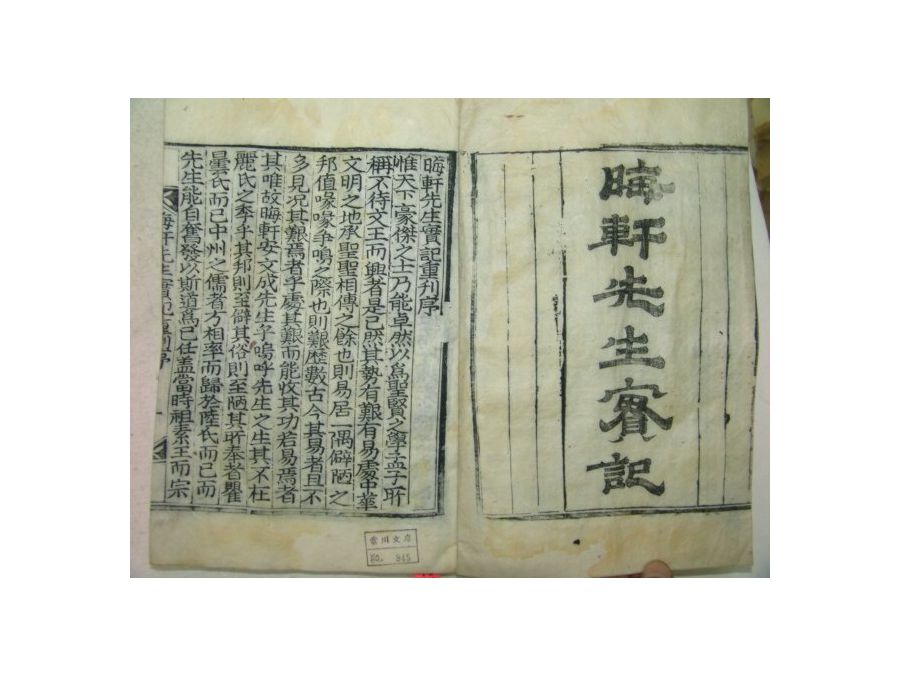 晦軒先生實記
晦軒先生實記重刋序
惟天下豪傑之士乃能卓然以爲聖賢之學孟子所
稱不待文王而興者是已然其勢有艱有易處中華
文明之地承聖聖相傳之餘也則易居一隅僻陋之
邦值喙喙爭鳴之際也則艱歷數古今其易者且不
多見况其艱焉者乎處其艱而能收其功若易焉者
其唯故晦軒安文成先生乎嗚呼先生之生其不在
麗氏之季乎其邦則至僻其俗則至陋其所奉者瞿
曇氏而已中州之儒者方相率而歸於陸氏而已而
先生能自奮發以斯道爲已任盖當時祖素王而宗
晦軒先生實記重刊序
文庫
NO. 845